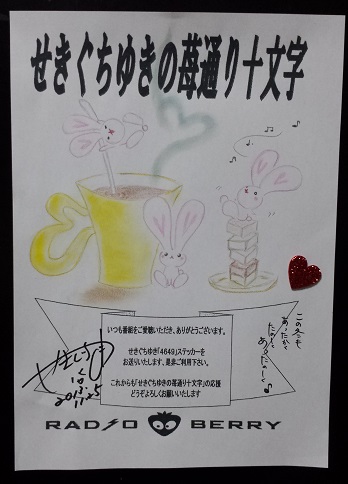 せきぐちゆきの苺通り十文字
この冬も
あったかく
たのしく
いつも番組をご愛聴いただき、ありがとうございます。
せきぐちゆき「4649」ステッカーを
お送りいたします、是非ご利用下さい。
これからも「せきぐちゆきの苺通り十文字」の応援
どうぞよろしくお願いいたします
2013.
11.25
RADIO BERRY